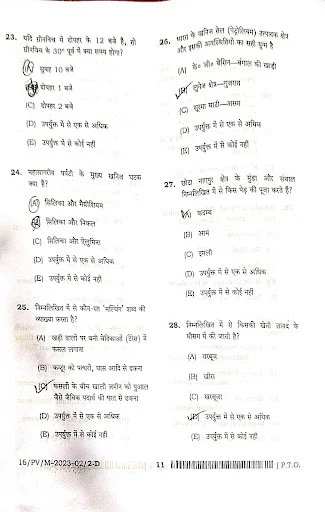 23. यदि ग्रीनविच में दोपहर के 12 बजे हैं, तो
ग्रीनविच के 30° पूर्व में क्या समय होगा?
(A) सुबह 10 बजे
दोपहर 1 बजे
(C) दोपहर 2 बजे
(D) उपर्युक्त में से एक से अधिक
(E) उपर्युक्त में से कोई नहीं
24. महासागरीय पर्पटी के मुख्य खनिज घटक
क्या हैं?
(A) सिलिका और मैग्नीशियम
सिलिका और निकल
(C) सिलिका और ऐलुमिना
(D) उपर्युक्त में से एक से अधिक
(E) उपर्युक्त में से कोई नहीं
25. निम्नलिखित में से कौन-सा 'मल्चिंग' शब्द की
व्याख्या करता है?
(A) खड़ी ढालों पर बनी वेदिकाओं (टेरेस) में
फसल लगाना
(B) कन्टूर को पत्थरों, घास आदि से ढकना
(C) फसलों के बीच खाली जमीन को पुआल
जैसे जैविक पदार्थ की परत से ढकना
(D) उपर्युक्त में से एक से अधिक
(E) उपर्युक्त में से कोई नहीं
26. भारत के खनिज तेल (पेट्रोलियम) उत्पादक क्षेत्र
और इसकी अवस्थितियों का सही युग्म है
(A) के० जी० बेसिन—बंगाल की खाड़ी
(B) लुनेज क्षेत्र—गुजरात
(C) सूरमा घाटी—असम
(D) उपर्युक्त में से एक से अधिक
(E) उपर्युक्त में से कोई नहीं
27. छोटा नागपुर क्षेत्र के मुंडा और संथाल
निम्नलिखित में से किस पेड़ की पूजा करते हैं?
(A) कदम्ब
(B) आम
(C) इमली
(D) उपर्युक्त में से एक से अधिक
(E) उपर्युक्त में से कोई नहीं
28. निम्नलिखित में से किसकी खेती जायद के
मौसम में की जाती है?
(A) तरबूज
(B) खीरा
(C) खरबूजा
(D) उपर्युक्त में से एक से अधिक
(E) उपर्युक्त में से कोई नहीं
16/PV/M-2023-02/2-D
11
[ P.T.O.